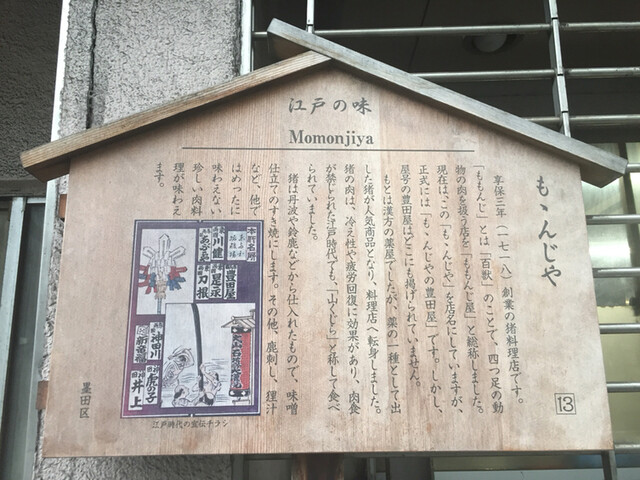 江戸の味
Momonjiya
もゝんじや
享保三年（一七一八）創業の猪料理店です。
「ももんじ」とは「百獣」のことで、四つ足の動
物の肉を扱う店を「ももんじ屋」と総称しました。
現在はこの「もゝんじや」を店名にしていますが、
正式には「もゝんじやの豊田屋」です。しかし、
屋号の豊田屋はどこにも掲げられていません。
もとは漢方の薬屋でしたが、薬の一種として出
した猪が人気商品となり、料理店へ転身しました。
猪の肉は、冷え性や疲労回復に効果があり、肉食
が禁じられた江戸時代でも、「山くじら」と称して食べ
られていました。
猪は丹波や鈴鹿などから仕入れたもので、味噌
仕立てのすき焼にします。その他、鹿刺し、狸汁
など、他で
はめったに
味わえない
珍しい肉料
理が味わえ
ます。
豊田屋
川健
神田川
虎の子
井上
江戸時代の宣伝チラシ
墨田区
13